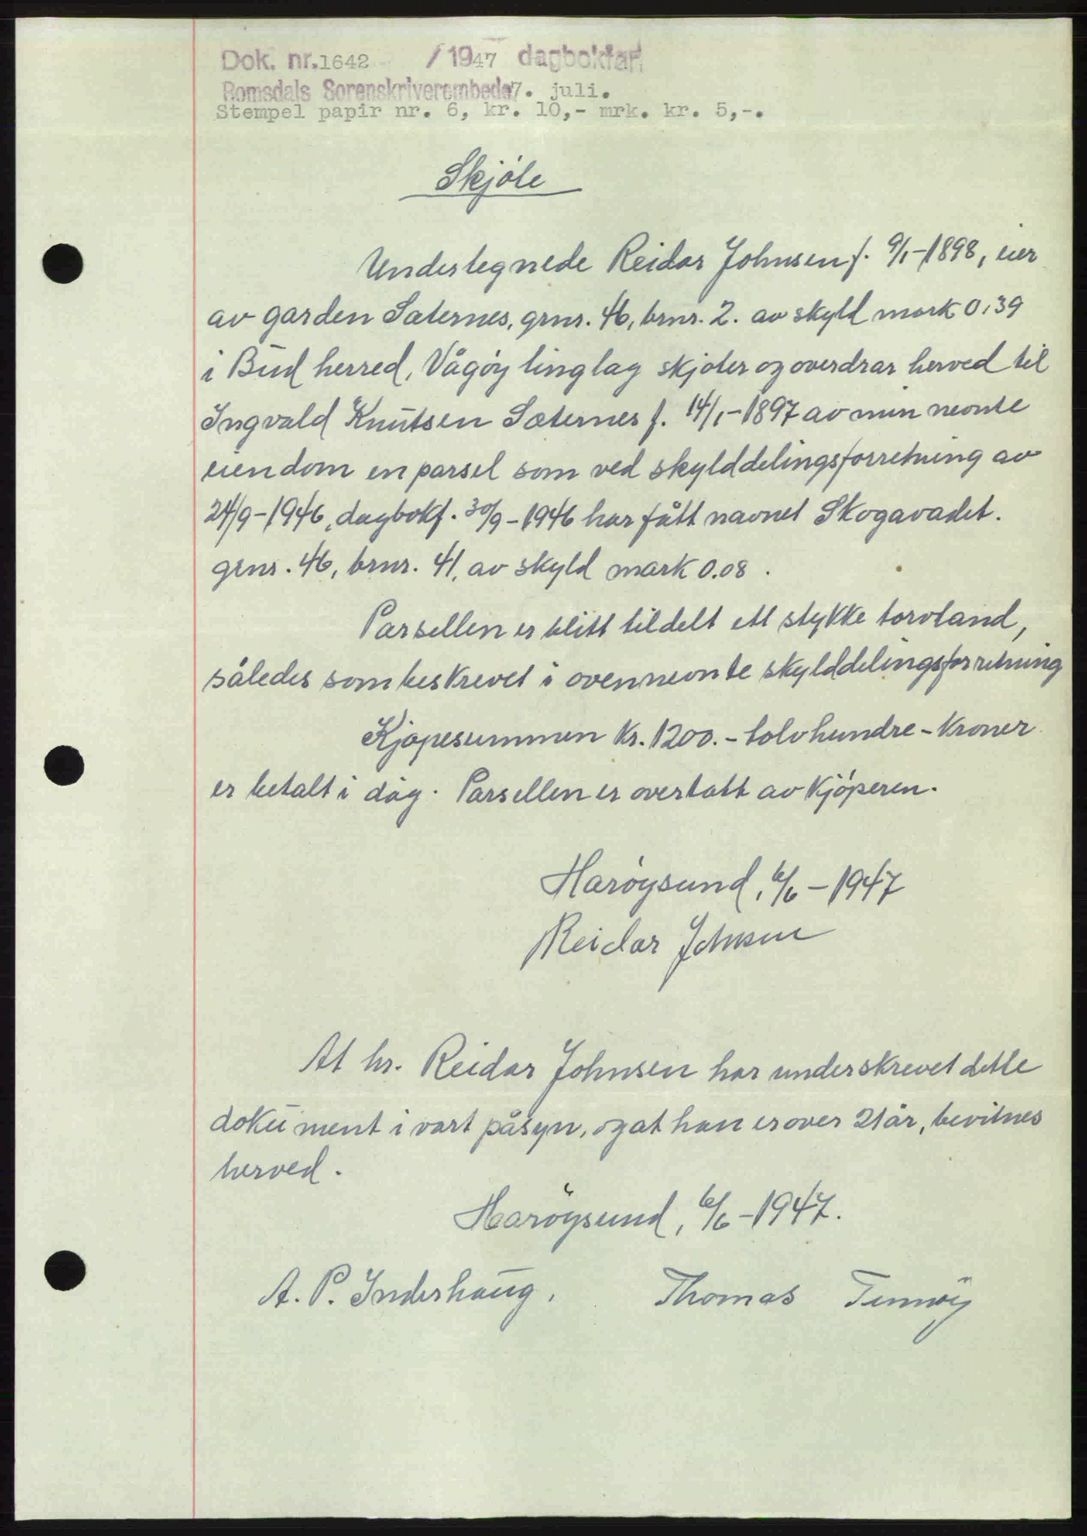 Dok. nr. 1642 / 1947 dagbokført
Romsdals Sorenskriverembede 7. juli.
Stempel papir nr. 6, kr. 10,- mrk. kr. 5,-.
Skjöte
Undertegnede Reidar Johnsen f. 9/1-1898, eier
av garden Sæternes, grnr. 46, brnr. 2. av skyld mark 0,39
i Bud herred, Vågöy tinglag skjöter og overdrar herved til
Ingvald Knutsen Sæternes f. 14/1-1897 av min nevnte
eiendom en parsel som ved skylddelingsforretning av
24/9-1946, dagbokf. 30/9-1946 har fått navnet Skogavadet.
grnr. 46, brnr. 41, av skyld mark 0.08.
Parsellen er blitt tildelt ett stykke torvland,
således som beskrevet i ovennevnte skylddelingsforretning
Kjöpesummen kr. 1200.- tolvhundre - kroner
er betalt i dag. Parsellen er overtatt av kjöperen.
Haröysund, 6/6-1947
Reidar Johnsen
At hr. Reidar Johnsen har underskrevet dette
dokument i vårt påsyn, og at han er over 21 år, bevitnes
herved.
Haröysund, 6/6-1947.
A. P. Inderhaug. Thomas Ternöy